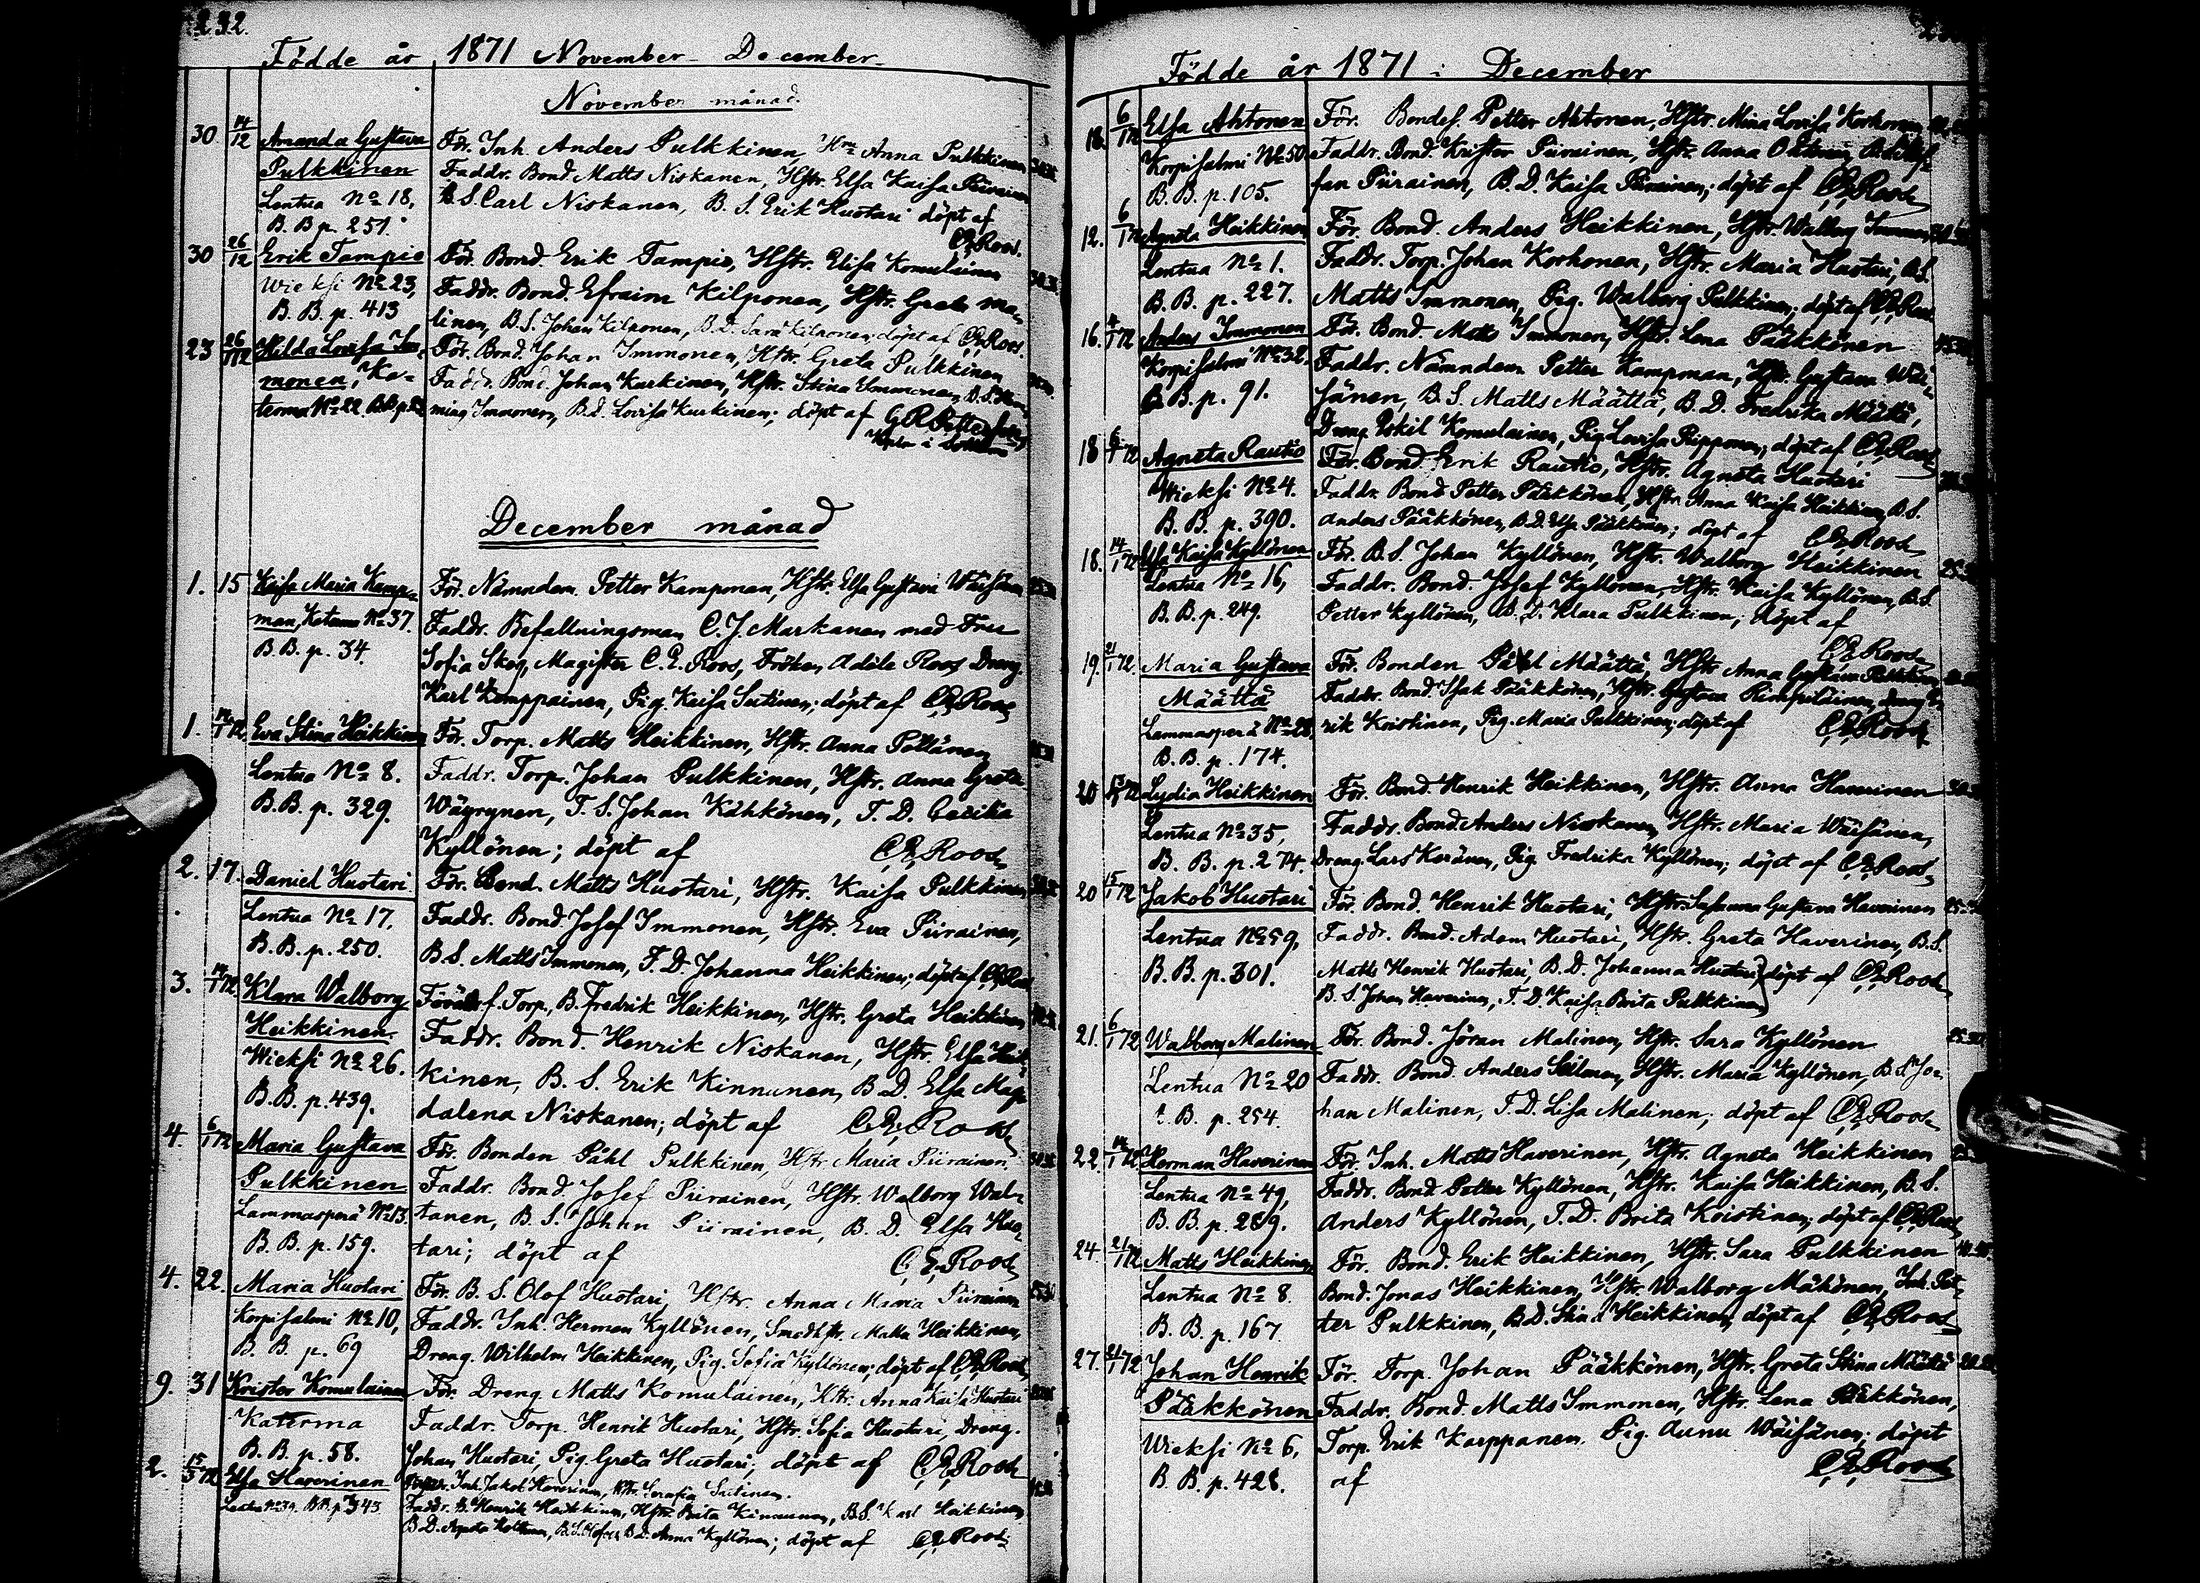 232.
Födde år 1871 November - December
November månad.
30 14/12 Amanda Gustava Pulkkinen
Lentua No 18,
B. B. p. 251.
För. Inh. Anders Pulkkinen, Anna Pulkkinen
Faddr. Bond. Matts Niskanen, Hstr. Elsa Kaisa Piirainen
B. S. Carl Niskanen, B. S. Erik Huotari döpt af
C. E. Roos.
30 26/12 Erik Tampio
Wieksi No 23,
B. B. p. 413
För. Bond. Erik Tampio, Hstr. Elisa Komulainen
Faddr. Bond. Efraim Kilponen, Hstr. Greta Ma-
linen, B. S. Johan Kilponen, B. D. Sara Kilponen; döpt af C. E. Roos.
23 Hilda Lovisa Im-
monen, Ka-
terma No 22
För. Bond. Johan Immonen, Hstr. Greta Pulkkinen
Faddr. Bond. Johan Kurkinen, Hstr. Stina Immonen, B. S.
Immonen, B. D. Lovisa Kurkinen; döpt af
December månad
1. 15 Kaisa Maria Kamp-
man, Katerma No 37.
B. B. p. 34.
För. Nämndem. Petter Kampman, Hstr. Elsa Gustava Wäisänen
Faddr. Befallningsman C. J. Markanen med Fru
Sofia Skog, Magister C. E. Roos, Fröken Adéle Roos, Dreng
Karl Komppainen, Pig. Kaisa Sutinen; döpt af C. E. Roos
1. 14/1 72 Eva Stina Heikkinen
Lentua No 8.
B. B. p. 329.
För. Torp. Matts Heikkinen, Hstr. Anna Pöllänen
Faddr. Torp. Johan Pulkkinen, Hstr. Anna Greta
Wäyrynen, T. S. Johan Kähkönen, T. D. Cecilia
Kyllönen; döpt af C. E. Roos
2. 17. Daniel Huotari
Lentua No 17,
B. B. p. 250.
För. Bond. Matts Huotari, Hstr. Kaisa Pulkkinen
Faddr. Bond. Josef Immonen, Hstr. Eva Piirainen,
B. S. Matts Immonen, T. D. Johanna Heikkinen; döpt af C. E. Roos
3. 14/1 72. Klara Walborg
Heikkinen
Wieksi No 26.
B. B. p. 439.
Föräldr. f. Torp., B. Fredrik Heikkinen, Hstr. Greta Heikkinen
Faddr. Bond. Henrik Niskanen, Hstr. Elsa Heik-
kinen, B. S. Erik Kinnunen, B. D. Elsa Mag-
dalena Niskanen; döpt af C. E. Roos
4. 6/1 72 Maria Gustava
Pulkkinen
Lammasperä No 13.
B. B. p. 159.
För. Bonden Påhl Pulkkinen, Hstr. Maria Piirainen
Faddr. Bond. Josef Piirainen, Hstr. Walborg Wal-
tanen, B. S. Johan Piirainen, B. D. Elsa Huo-
tari; döpt af C. E. Roos
4. 22. Maria Huotari
Korpisalmi No 10,
B. B. p. 69
För. B. S. Olof Huotari, Hstr. Anna Maria Piirainen
Faddr. Inh. Herman Kyllönen, Heikkinen,
Dreng. Wilhelm Heikkinen, Pig. Sofia Kyllönen; döpt af C. E. Roos
9. 31 Kristor Komulainen
Katerma
B. B. p. 58.
För. Dreng. Matts Komulainen, Hstr. Anna Kaisa Huotari
Faddr. Torp. Henrik Huotari, Hstr. Sofia Huotari, Dreng.
Johan Huotari, Pig. Greta Huotari; döpt af C. E. Roos
2. Elsa Haverinen
Inh. Jakob Haverinen, Hstr. Serafia Sutinen.
Faddr. B. Henrik Heikkinen, Hstr. Brita Kinnunen, B. S. Karl Heikkinen
B. D. Anna Kyllönen; döpt af C. E. Roos
Födde år 1871 i December
18. 6/1 72 Elsa Ahtonen
Korpisalmi No 50
B. B. p. 105.
För. Bondes. Petter Ahtonen, Hstr. Mina Lovisa Korhonen
Faddr. Bond. Krister Piirainen, Hstr. Anna
fan Piirainen, B. D. Kaisa Piirainen; döpt af C. E. Roos
12. 6/1 72 Agneta Heikkinen
Lentua No 1.
B. B. p. 227.
För. Bond. Anders Heikkinen, Hstr. Walborg Immonen
Faddr. Torp. Johan Korhonen, Hstr. Maria Huotari, B. S.
Matts Immonen, Pig. Walborg Pulkkinen; döpt af C. E. Roos
16. 72 Anders Immonen
Korpisalmi No 32.
B. B. p. 91.
För. Bond. Matts Immonen, Hstr. Lena Pääkkönen
Faddr. Nämndem. Petter Kampman, Hstr. Gustava Wäi-
sänen, B. S. Matts Määttä, B. D. Fredrika Määttä,
Dreng Eskil Komulainen, Pig. Lovisa Piipponen; döpt af C. E. Roos
18 72 Agneta Rautio
Wieksi No 4.
B. B. p. 390.
För. Bond. Erik Rautio, Hstr. Agneta Huotari
Faddr. Bond. Petter Pääkkönen, Hstr. Anna Kaisa Heikkinen, B. S.
Anders Pääkkönen, B. D. Elsa Pääkkönen; döpt af C. E. Roos
18. 14/1 72 Elsa Kaisa Kyllönen
Lentua No 16,
B. B. p. 249.
För. B. S. Johan Kyllönen, Hstr. Walborg Heikkinen
Faddr. Bond. Josef Kyllönen, Hstr. Kaisa Kyllönen, B. S.
Petter Kyllönen, B. D. Klara Pulkkinen; döpt af
C. E. Roos
19. 21/1 72. Maria Gustava
Määttä
Lammasperä No 28,
B. B. p. 174.
För. Bonden Påhl Määttä, Hstr. Anna Gustava Pulkkinen
Faddr. Bond. Isak Pääkkönen, Hstr. Gustava Rimpiläinen, dreng E-
rik Koistinen, Pig. Maria Pulkkinen; döpt af C. E. Roos
20 72 Lydia Heikkinen
Lentua No 35,
B. B. p. 274.
För. Bond. Henrik Heikkinen, Hstr. Anna Haverinen
Faddr. Bond. Anders Niskanen, Hstr. Maria Wäisänen,
Dreng. Lars Keränen, Pig. Fredrika Kyllönen; döpt af C. E. Roos
20 15/1 72 Jakob Huotari
Lentua No 59,
B. B. p. 301.
För. Bond. Henrik Huotari, Hstr. Susanna Gustava Haverinen
Faddr. Bond. Adam Huotari, Hstr. Greta Haverinen, B. S.
Matts Henrik Huotari, B. D. Johanna Huotari, döpt af C. E. Roos
B. S. Johan Haverinen, T. D. Kaisa Brita Pulkkinen
21. 6/1 72 Walborg Malinen
Lentua No 20
B. p. 254.
För. Bond. Jöran Malinen, Hstr. Sara Kyllönen
Faddr. Bond. Anders, Hstr. Maria Kyllönen, B. S. Jo-
han Malinen, T. D. Lisa Malinen; döpt af C. E. Roos
22. 14/1 72 Herman Haverinen
Lentua No 49,
B. B. p. 289.
För. Inh. Matts Haverinen, Hstr. Agneta Heikkinen
Faddr. Bond. Petter Kyllönen, Hstr. Kaisa Heikkinen, B. S.
Anders Kyllönen, T. D. Brita Koistinen; döpt af C. E. Roos
24. 21/1 72 Matts Heikkinen
Lentua No 8.
B. B. p. 167.
För. Bond. Erik Heikkinen, Hstr. Sara Pulkkinen
Bond. Jonas Heikkinen, Hstr. Walborg Mähönen, Inh. Pet-
ter Pulkkinen, B. D. Stina Heikkinen, döpt af C. E. Roos
27. 21/1 72 Johan Henrik
Pääkkönen
Wieksi No 6,
B. B. p. 428.
För. Torp. Johan Pääkkönen, Hstr. Greta Stina Määttä
Faddr. Bond. Matts Immonen, Hstr. Lena Pääkkönen,
Torp. Erik Karppanen. Pig. Anna Wäisänen; döpt
af C. E. Roos